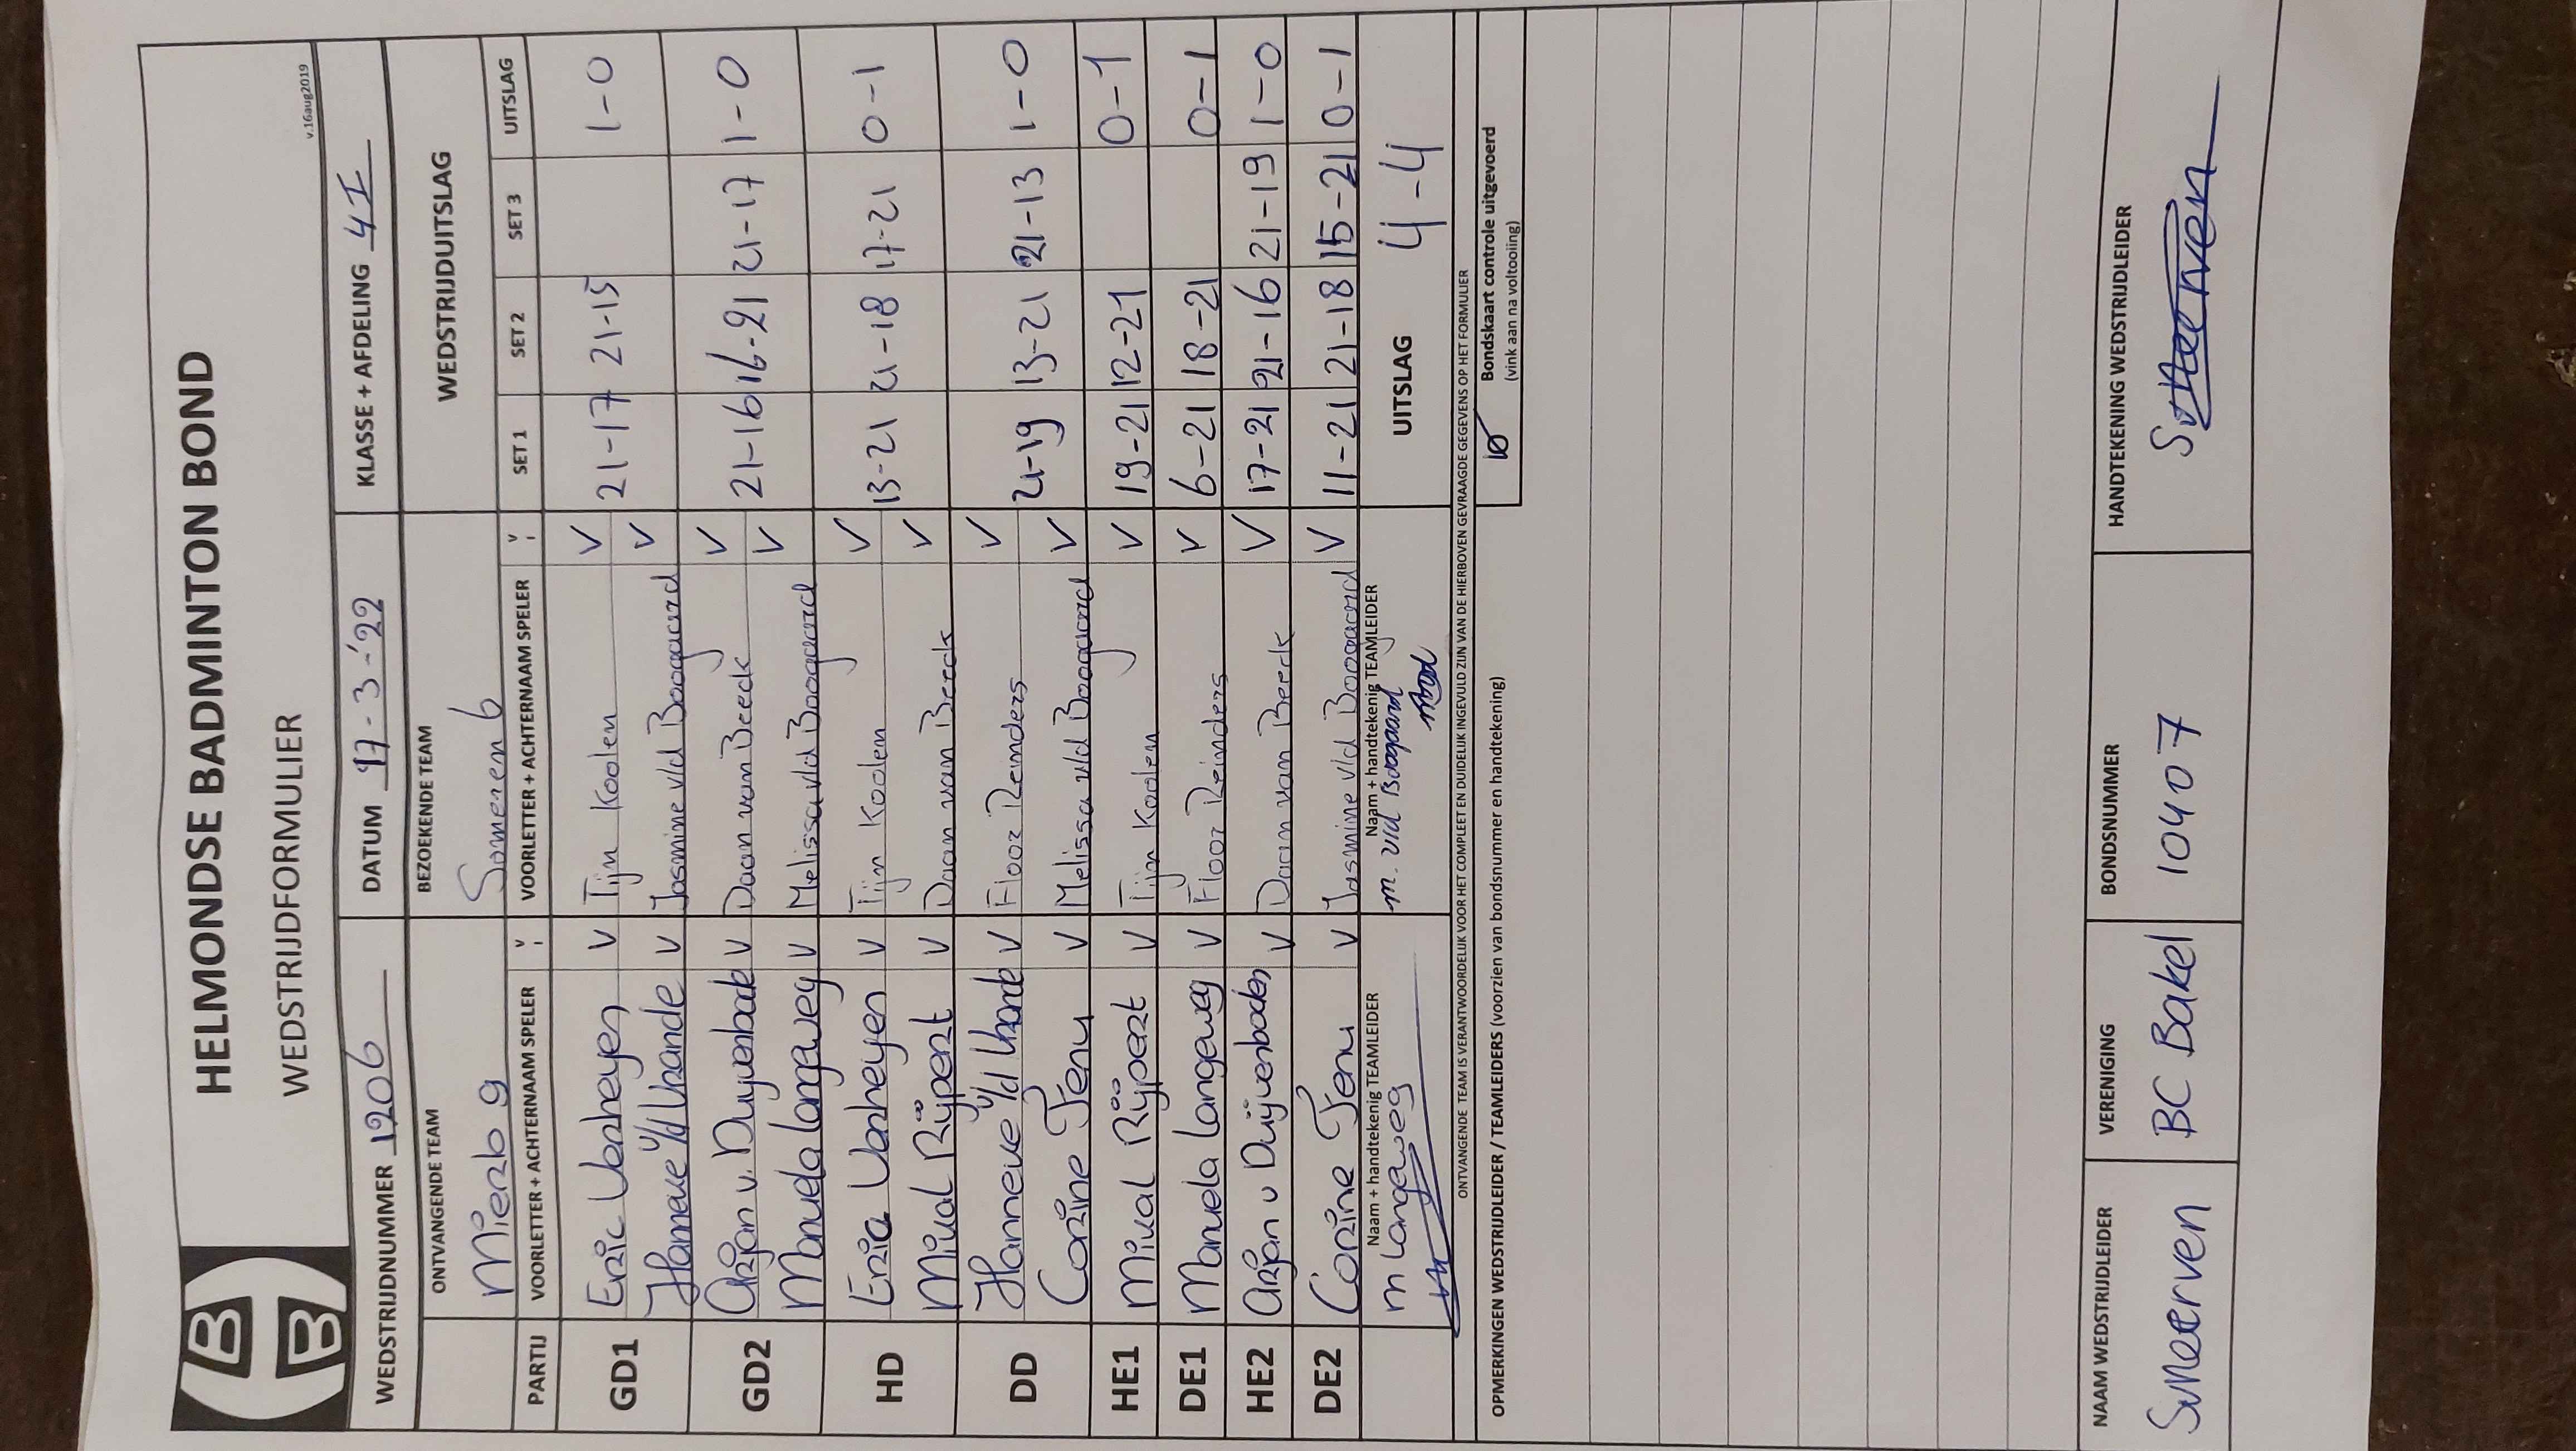 HELMONDSE BADMINTON BOND
WEDSTRIJDFORMULIER
v.16aug2019
WEDSTRIJDNUMMER 1206 DATUM 17-3-'22 KLASSE + AFDELING 4I
ONTVANGENDE TEAM BEZOEKENDE TEAM WEDSTRIJDUITSLAG
Mierlo 9 Someren 6
PARTIJ VOORLETTER + ACHTERNAAM SPELER V VOORLETTER + ACHTERNAAM SPELER V SET 1 SET 2 SET 3 UITSLAG
GD1 Eric Verheyen V Tijn Koolen V 21-17 21-15 1-0
Hanneke v/d V Jasmine v/d Boogaard V
GD2 Arjan v. Duyvenbode V Daan van Beeck V 21-16 16-21 21-17 1-0
Manuela Langeweg V Melissa v/d Boogaard V
HD Eric Verheyen V Tijn Koolen V 13-21 21-18 17-21 0-1
Rijpert V Daan van Beeck V
DD Hanneke v/d V Floor Reinders V 21-19 13-21 21-13 1-0
Corine V Melissa v/d Boogaard V
HE1 Rijpert V Tijn Koolen V 19-21 12-21 0-1
DE1 Manuela Langeweg V Floor Reinders V 6-21 18-21 0-1
HE2 Arjan v Duijvenboden V Daan van Beeck V 17-21 21-16 21-19 1-0
DE2 Corine V Jasmine v/d Boogaard V 11-21 21-18 15-21 0-1
Naam + handtekenig TEAMLEIDER Naam + handtekenig TEAMLEIDER UITSLAG 4-4
m Langeweg m. v/d Boogaard
ONTVANGENDE TEAM IS VERANTWOORDELIJK VOOR HET COMPLEET EN DUIDELIJK INGEVULD ZIJN VAN DE HIERBOVEN GEVRAAGDE GEGEVENS OP HET FORMULIER
OPMERKINGEN WEDSTRIJDLEIDER / TEAMLEIDERS (voorzien van bondsnummer en handtekening) Bondskaart controle uitgevoerd
(vink aan na voltooiing)
NAAM WEDSTRIJDLEIDER VERENIGING BONDSNUMMER HANDTEKENING WEDSTRIJDLEIDER
BC Bakel 10407